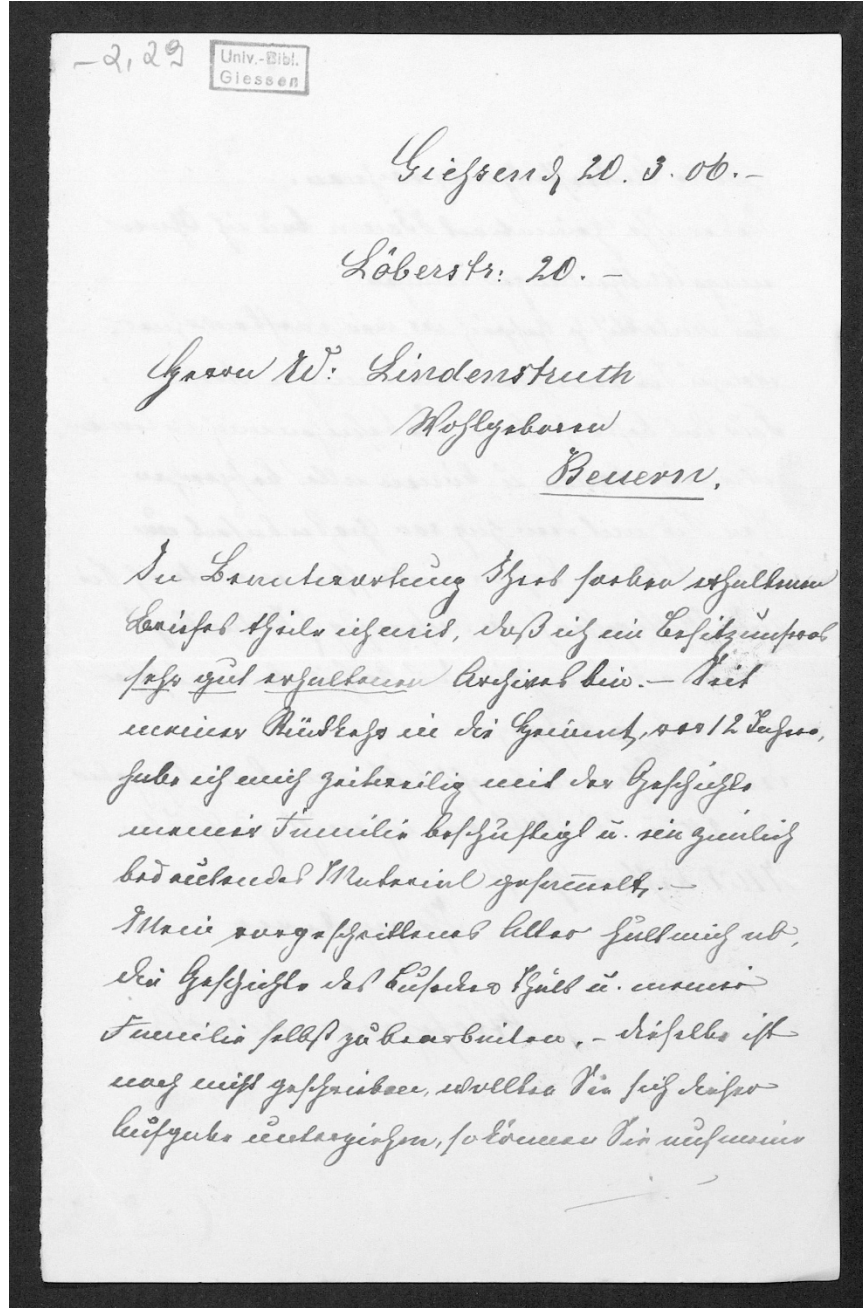 -2,29
Univ.-Bibl.
Giessen
Giessen d, 20. 3. 06. –
Löberstr: 20. –
Herrn W: Lindenstruth
Wohlgeboren
Beuern.
In Beantwortung Ihres soeben erhaltenen
Briefes theile ich mit, daß ich im Besitz unseres
sehr gut erhaltenen Archives bin. – Seit
meiner Rückkehr in die Heimat, vor 12 Jahren,
habe ich mich zeitweilig mit der Geschichte
meiner Familie beschäftigt u. ein ziemlich
bedeutendes Material gesammelt. –
Mein vorgeschrittenes Alter hält mich ab,
die Geschichte des Busecker Thals u. meiner
Familie selbst zu bearbeiten. – dieselbe ist
noch nicht geschrieben, wollten Sie sich dieser
Aufgabe unterziehen, so können Sie auf meine